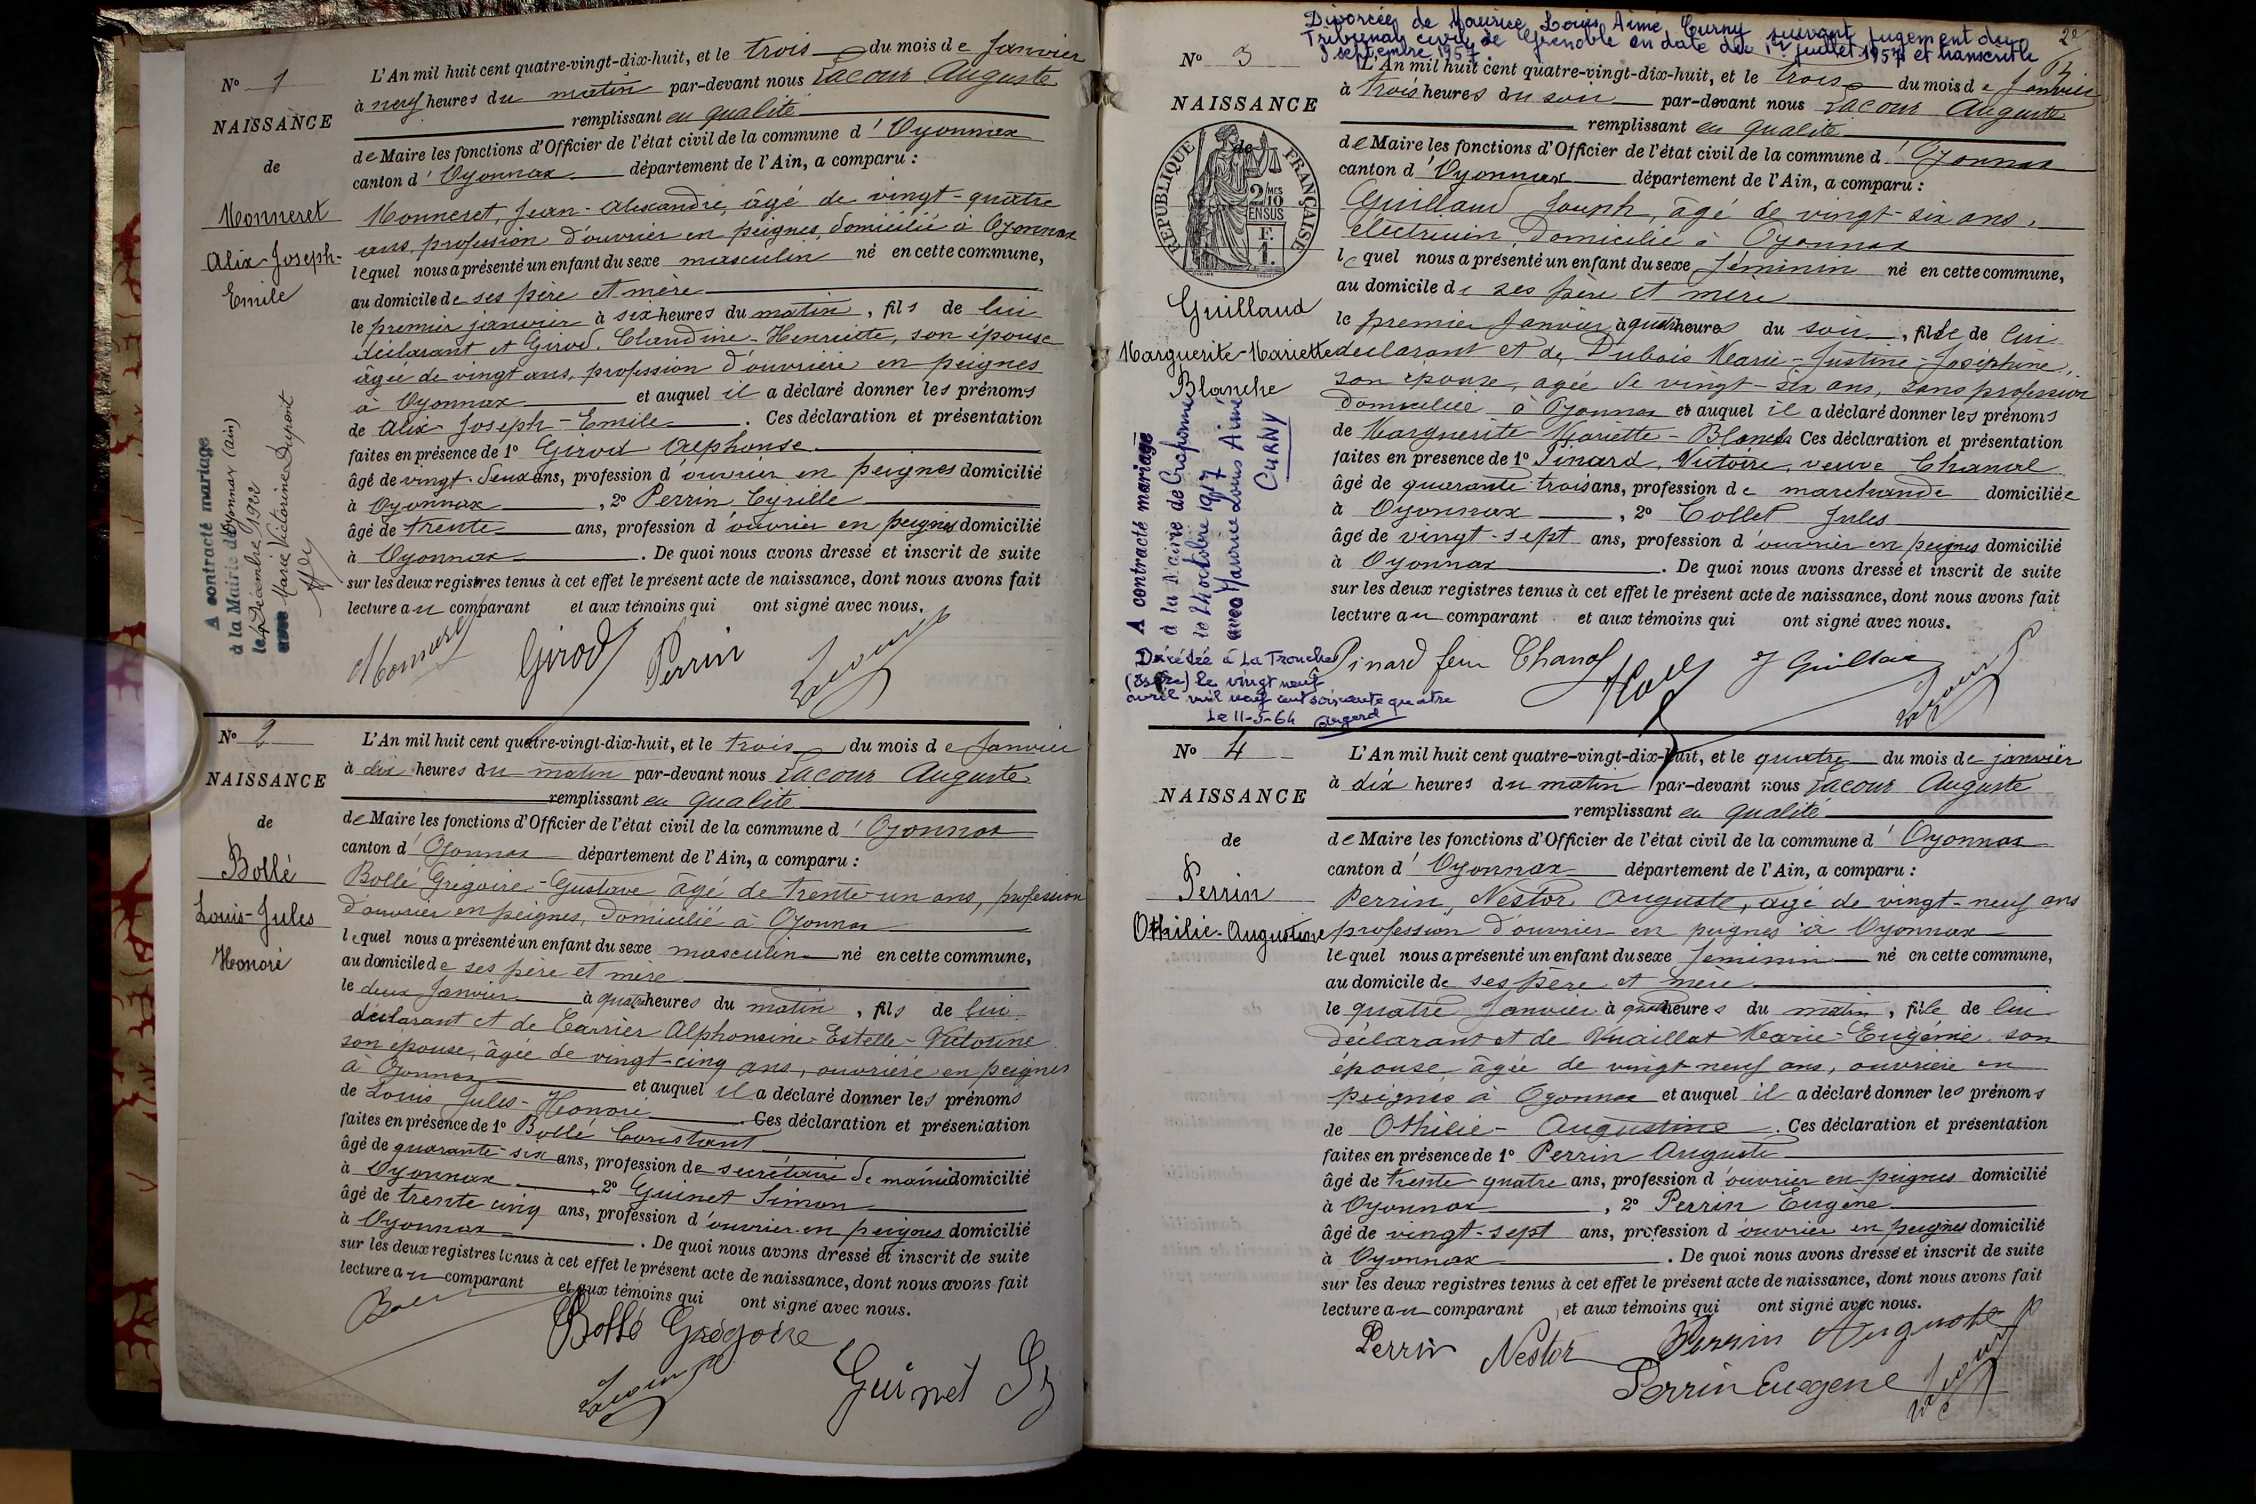 N° 1
NAISSANCE
de
Monneret
Alix-Joseph-
Emile
A contracté mariage
à la Mairie d'Oyonnax (Ain)
le Décembre 1922
avec Marie Victorine Dupont
L'An mil huit cent quatre-vingt-dix-huit, et le trois du mois de Janvier
à neuf heures du matin par-devant nous Lacour Auguste
remplissant en qualité
de Maire les fonctions d'Officier de l'état civil de la commune d'Oyonnax
canton d'Oyonnax département de l'Ain, a comparu :
Monneret, Jean-Alexandre, âgé de vingt-quatre
ans, profession d'ouvrier en peignes, domicilié à Oyonnax
lequel nous a présenté un enfant du sexe masculin né en cette commune,
au domicile de ses père et mère
le premier janvier à six heures du matin, fils de lui
déclarant et Girod Claudine-Henriette, son épouse
âgée de vingt ans, profession d'ouvrière en peignes
à Oyonnax et auquel il a déclaré donner les prénoms
de Alix Joseph-Emile. Ces déclaration et présentation
faites en présence de 1° Girod Alphonse
âgé de vingt-deux ans, profession d'ouvrier en peignes domicilié
à Oyonnax, 2° Perrin Cyrille
âgé de trente ans, profession d'ouvrier en peignes domicilié
à Oyonnax. De quoi nous avons dressé et inscrit de suite
sur les deux registres tenus à cet effet le présent acte de naissance, dont nous avons fait
lecture au comparant et aux témoins qui ont signé avec nous.
Monneret Girod Perrin Lacour
N° 2
NAISSANCE
de
Bollé
Louis-Jules
Honoré
L'An mil huit cent quatre-vingt-dix-huit, et le trois du mois de Janvier
à dix heures du matin par-devant nous Lacour Auguste
remplissant en qualité
de Maire les fonctions d'Officier de l'état civil de la commune d'Oyonnax
canton d'Oyonnax département de l'Ain, a comparu :
Bollé Grégoire-Gustave âgé de trente-un ans, profession
d'ouvrier en peignes, domicilié à Oyonnax
lequel nous a présenté un enfant du sexe masculin né en cette commune,
au domicile de ses père et mère
le deux Janvier à quatre heures du matin, fils de lui
déclarant et de Carrier Alphonsine-Estelle-Victorine
son épouse, âgée de vingt-cinq ans, ouvrière en peignes
à Oyonnax et auquel il a déclaré donner les prénoms
de Louis Jules-Honoré Ces déclaration et présentation
faites en présence de 1° Bollé Constant
âgé de quarante-six ans, profession de secrétaire de mairie domicilié
à Oyonnax, 2° Guinet Simon
âgé de trente cinq ans, profession d'ouvrier en peignes domicilié
à Oyonnax. De quoi nous avons dressé et inscrit de suite
sur les deux registres tenus à cet effet le présent acte de naissance, dont nous avons fait
lecture au comparant et aux témoins qui ont signé avec nous.
Bollé Grégoire
Lacour Guinet S
2e
Divorcée de Maurice Louis Aimé Curny suivant jugement du
Tribunal civil de Grenoble en date du 1er juillet 1957 et transcrit le
3 septembre 1957.
N° 3
NAISSANCE
de
RÉPUBLIQUE FRANÇAISE
2/10
EN SUS
1.
Guillaud
Marguerite-Mariette
Blanche
A contracté mariage
à la Mairie de
le 24 octobre 1917
avec Maurice Louis Aimé
CURNY
Décédée à La Tronche
(Isère) le vingt neuf
avril mil neuf cent soixante quatre
Le 11-5-64
L'An mil huit cent quatre-vingt-dix-huit, et le trois du mois de Janvier
à trois heures du soir par-devant nous Lacour Auguste
remplissant en qualité
de Maire les fonctions d'Officier de l'état civil de la commune d'Oyonnax
canton d'Oyonnax département de l'Ain, a comparu :
Guillaud Joseph, âgé de vingt-six ans,
électricien, domicilié à Oyonnax
lequel nous a présenté un enfant du sexe féminin né en cette commune,
au domicile de ses père et mère
le premier Janvier à quatre heures du soir, fille de lui
déclarant et de Dubois Marie-Justine-Joséphine,
son épouse, âgée de vingt-six ans, sans profession
domiciliée à Oyonnax et auquel il a déclaré donner les prénoms
de Marguerite Mariette-Blanche Ces déclaration et présentation
faites en presence de 1° Pinard, Victoire, veuve Chanal
âgé de quarante trois ans, profession de marchande domiciliée
à Oyonnax, 2° Collet Jules
âgé de vingt-sept ans, profession d'ouvrier en peignes domicilié
à Oyonnax. De quoi nous avons dressé et inscrit de suite
sur les deux registres tenus à cet effet le présent acte de naissance, dont nous avons fait
lecture au comparant et aux témoins qui ont signé avec nous.
Pinard Chanal J Guillaud Lacour
N° 4
NAISSANCE
de
Perrin
Othilie-Augustine
L'An mil huit cent quatre-vingt-dix-huit, et le quatre du mois de janvier
à dix heures du matin par-devant nous Lacour Auguste
remplissant en qualité
de Maire les fonctions d'Officier de l'état civil de la commune d'Oyonnax
canton d'Oyonnax département de l'Ain, a comparu :
Perrin, Nestor Auguste, âgé de vingt-neuf ans
profession d'ouvrier en peignes à Oyonnax
lequel nous a présenté un enfant du sexe féminin né en cette commune,
au domicile de ses père et mère
le quatre Janvier à quatre heures du matin, fille de lui
déclarant et de Vuaillat Marie-Eugénie son
épouse âgée de vingt-neuf ans, ouvrière en
peignes à Oyonnax et auquel il a déclaré donner les prénoms
de Othilie-Augustine. Ces déclaration et présentation
faites en présence de 1° Perrin Auguste
âgé de trente-quatre ans, profession d'ouvrier en peignes domicilié
à Oyonnax, 2° Perrin Eugène
âgé de vingt-sept ans, profession d'ouvrier en peignes domicilié
à Oyonnax. De quoi nous avons dressé et inscrit de suite
sur les deux registres tenus à cet effet le présent acte de naissance, dont nous avons fait
lecture au comparant et aux témoins qui ont signé avec nous.
Perrin Nestor Perrin Auguste
Perrin Eugene Lacour